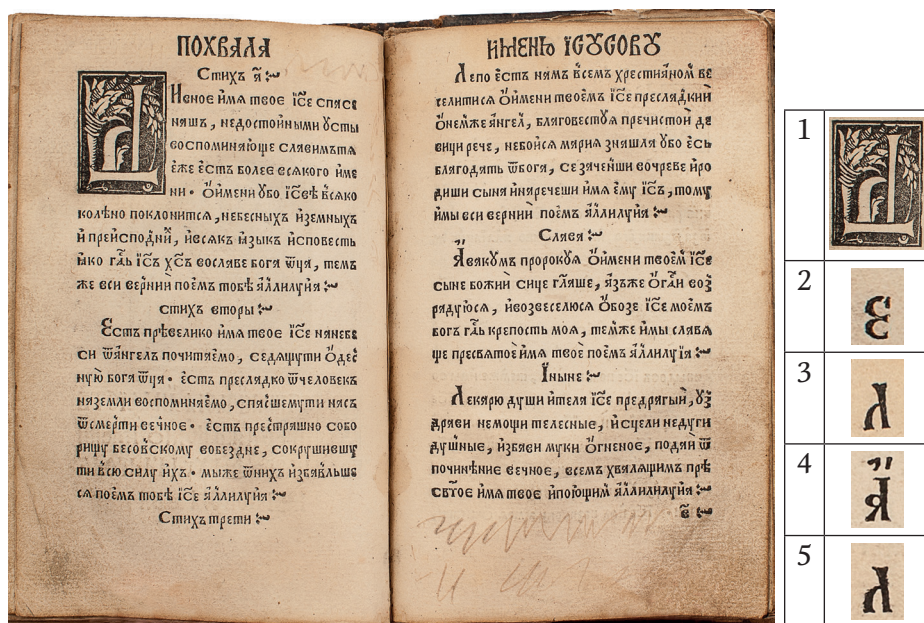 ПОХВАЛА
Стихъ а҃
Д
Ивное и́мя твое і҃се спасе
нашъ, недостойными ѹсты
воспоминающе славимътя
еже естъ более всякого име
ни · О́имени ѹбо і҃свѣ всяко
колѣно поклонится, небесныхъ и́земныхъ
и́ преисподнй, ивсякъ языкъ исповесть
яко га҃ь і҃съ х҃съ вославе бога ѿца, темъ
же вси вернии поемъ тобѣ а́ллилуия
стихъ вторы
Єстъ превелико имя твое і҃се нанебе
си ѿа́нгелъ почитаемо, седящути о́дес
ную бога ѿца · естъ пресладко ѿчеловекъ
наземли воспоминаемо, спасшемути насъ
ѿсмерти вечное · естъ престрашно собо
рищу бесовскому вобездне, сокрушившу
ти всю силу ихъ · мыже ѿнихъ избавльше
ся поемъ тобѣ і҃се а́ллилуия
Стихъ трети
ИМЕНЮ ІСУСОВУ
Лепо естъ намъ всемъ християном ве
селитися о́имени твоемъ і҃се пресладкий
о́немже а́нгел, благовествуя пречистой де
вици рече, небойся мария знашла ѹбо есь
благодать ѿбога, се зачнеши вочреве иро
диши сына инаречеши имя ему і҃съ, тому
имы вси вернии поемъ а́ллилуия
Слава
Авакумъ пророкуя о́имени твоем і҃се
сыне божий сице гл҃аше, азъже о́га҃и воз
радуюся, ивозвеселюся о́бозе і҃се моемъ
богъ га҃ь крепость моя, темже имы славя
ще пресвятое имя твое поемъ а́ллилуія
Іныне
Лекарю души ителя і҃се предрагый, ѹз
драви немощи телесные, исцели недуги
душные, избави муки о́гненое, подай ѿ
починение вечное, всемъ хвалящим пре
свтое имя твое ипоющим а́ллилилуия
в҃
1
Д
2
Є
3
Л
4
А
5
Л